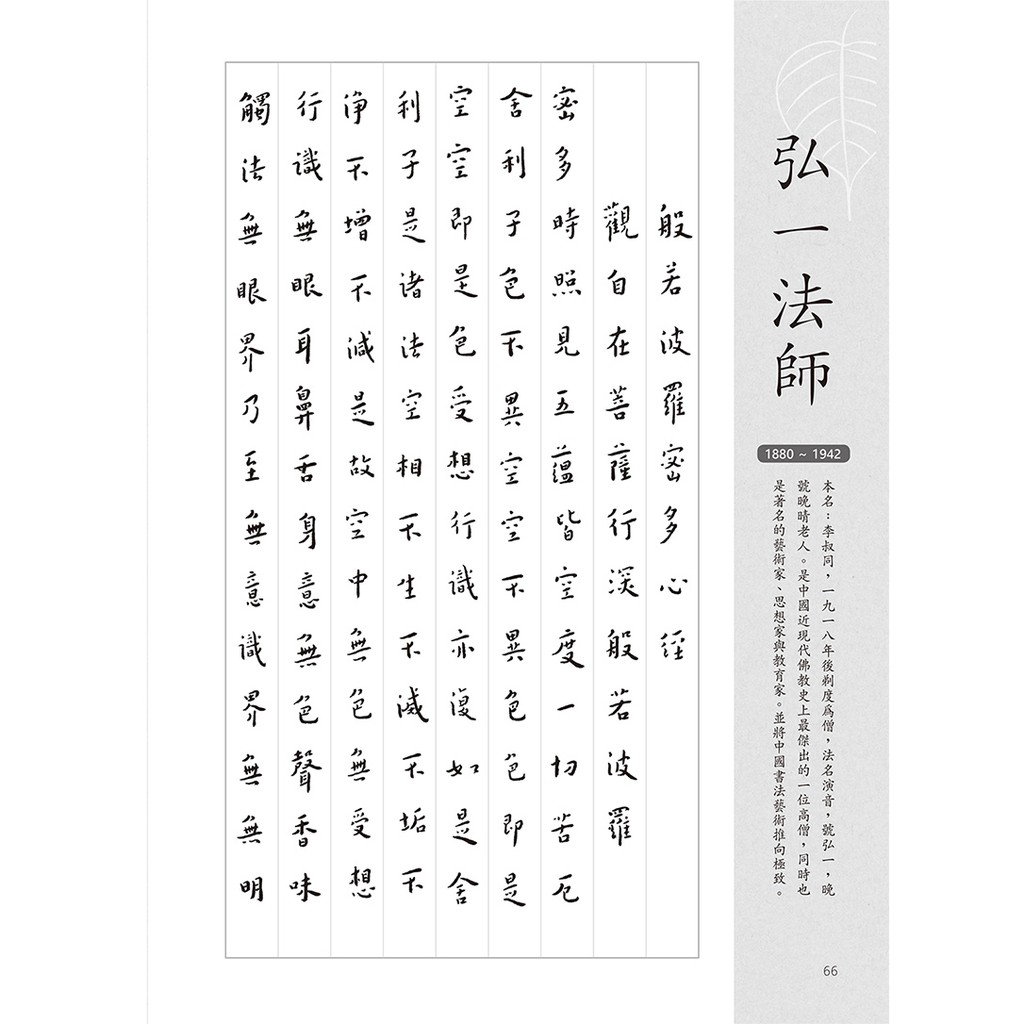 弘一法師
1880 ~ 1942
本名：李叔同，一九一八年後剃度為僧，法名演音，號弘一，晚
號晚晴老人。是中國近現代佛教史上最傑出的一位高僧，同時也
是著名的藝術家、思想家與教育家。並將中國書法藝術推向極致。
般若波羅蜜多心經
觀自在菩薩行深般若波羅
蜜多時照見五蘊皆空度一切苦厄
舍利子色不異空空不異色色即是
空空即是色受想行識亦復如是舍
利子是諸法空相不生不滅不垢不
淨不增不減是故空中無色無受想
行識無眼耳鼻舌身意無色聲香味
觸法無眼界乃至無意識界無無明
66